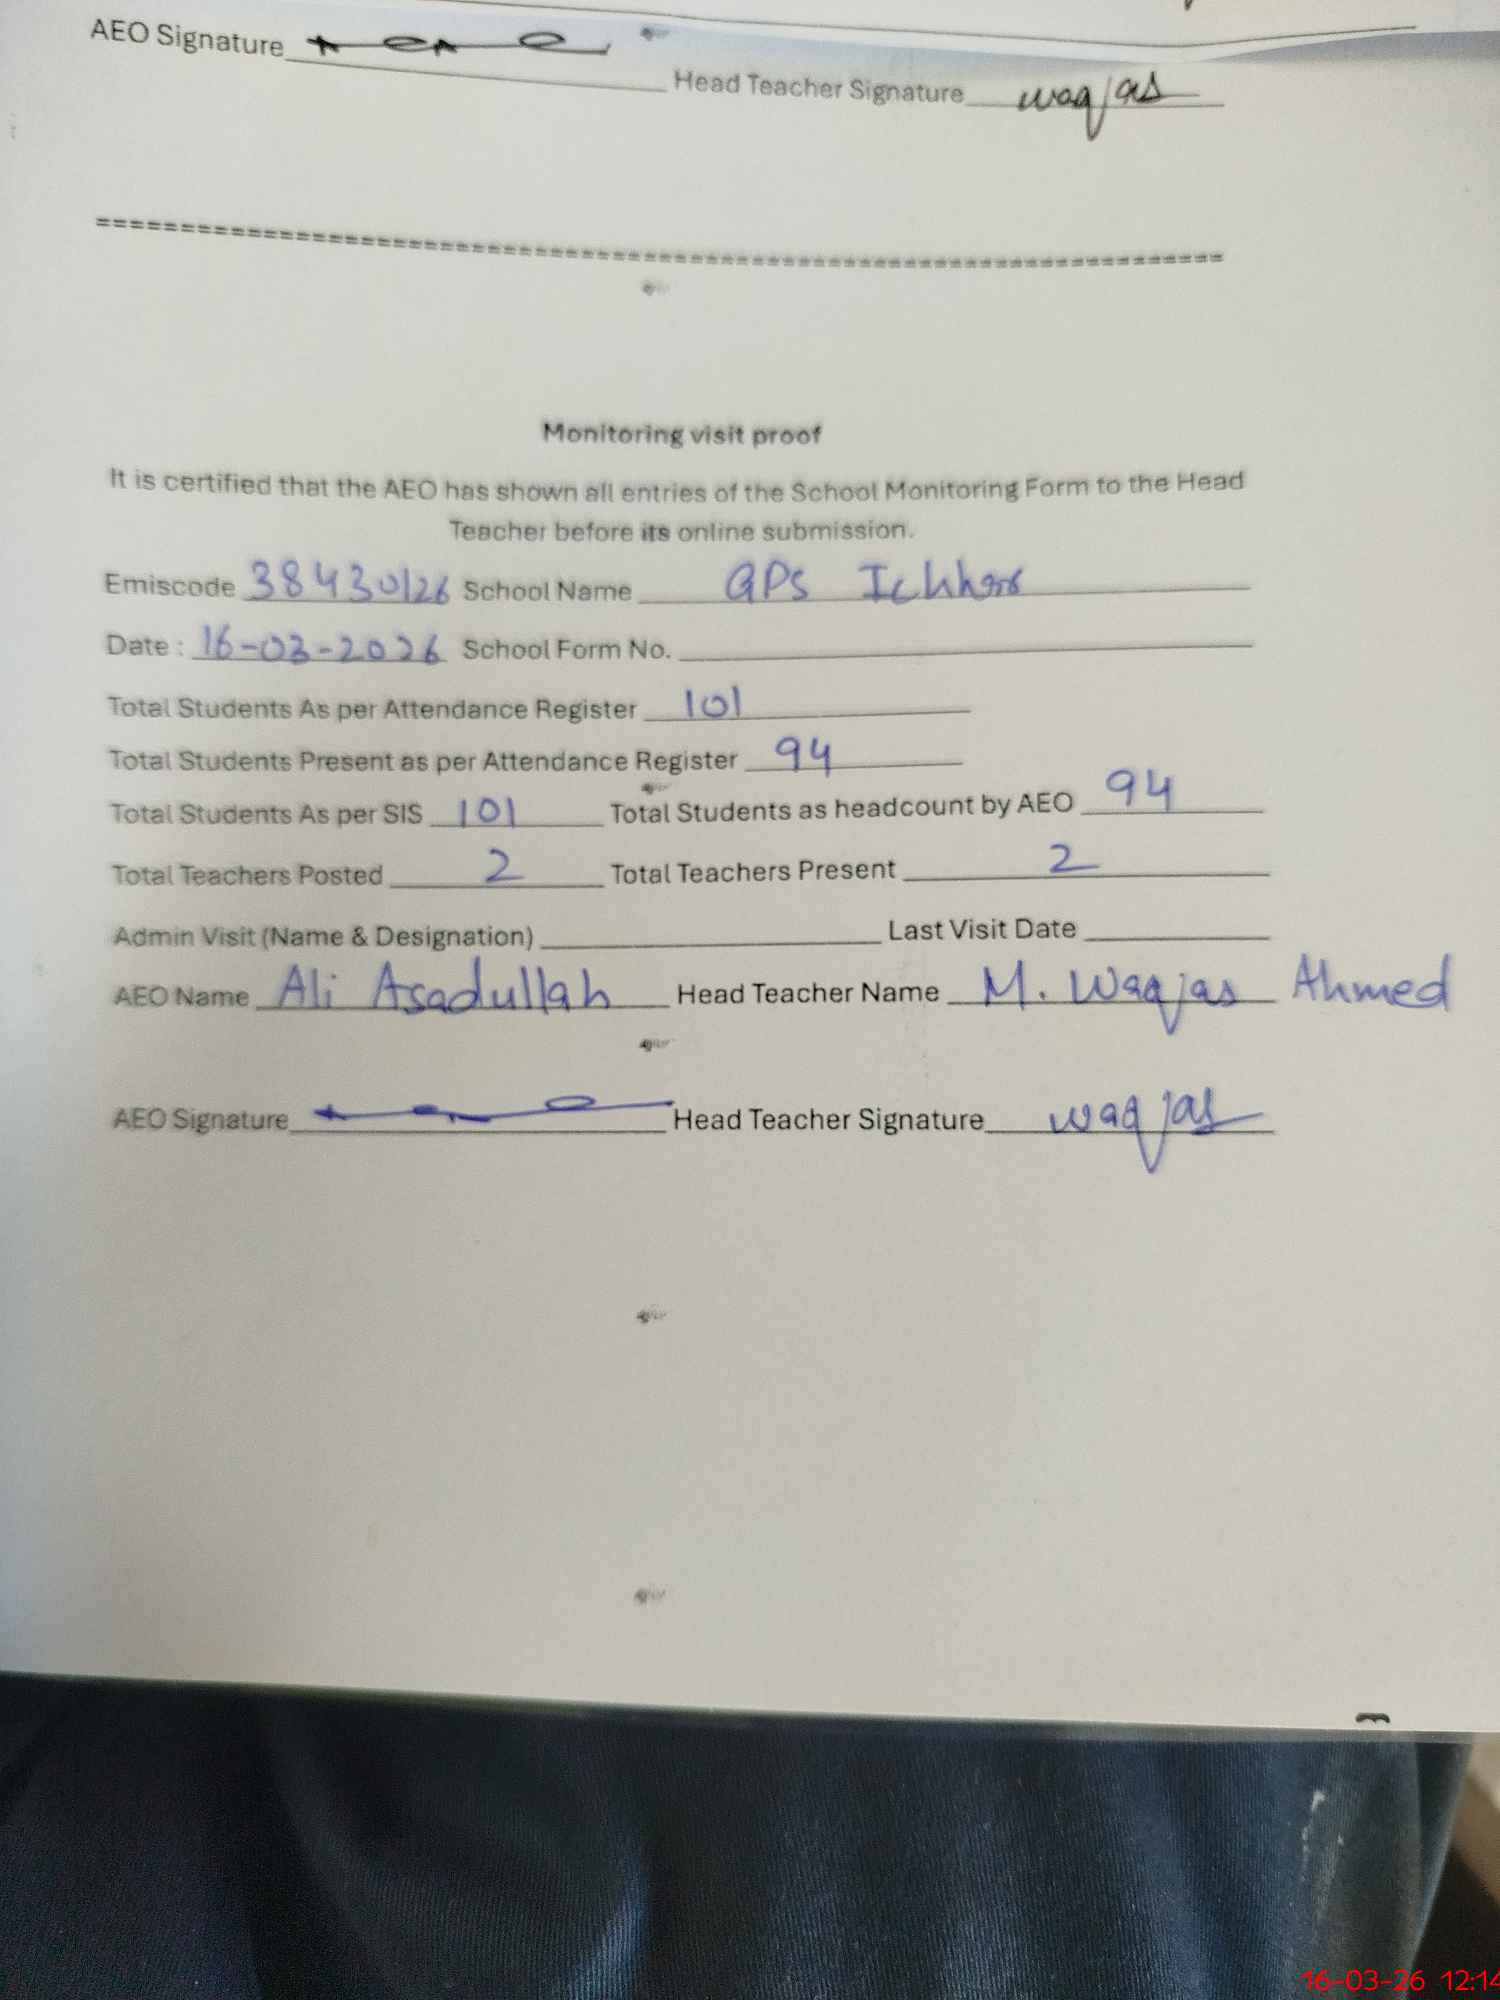 AEO Signature Head Teacher Signature waqas
==========================================================================
Monitoring visit proof
It is certified that the AEO has shown all entries of the School Monitoring Form to the Head
Teacher before its online submission.
Emiscode 38430126 School Name GPS
Date : 16-03-2026 School Form No.
Total Students As per Attendance Register 101
Total Students Present as per Attendance Register 94
Total Students As per SIS 101 Total Students as headcount by AEO 94
Total Teachers Posted 2 Total Teachers Present 2
Admin Visit (Name & Designation) Last Visit Date
AEO Name Ali Asadullah Head Teacher Name M. Waqas Ahmed
AEO Signature Head Teacher Signature waqas
16-03-26 12:14